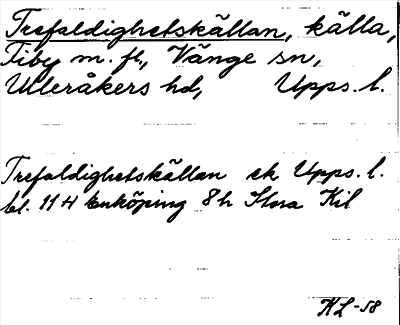 Trefaldighetskällan, källa,
Fiby m. fl., Vänge sn,
Ulleråkers hd, Upps. l.
Trefaldighetskällan ek Upps. l.
bl. 11 H Enköping 8 h Stora Kil
KL-58